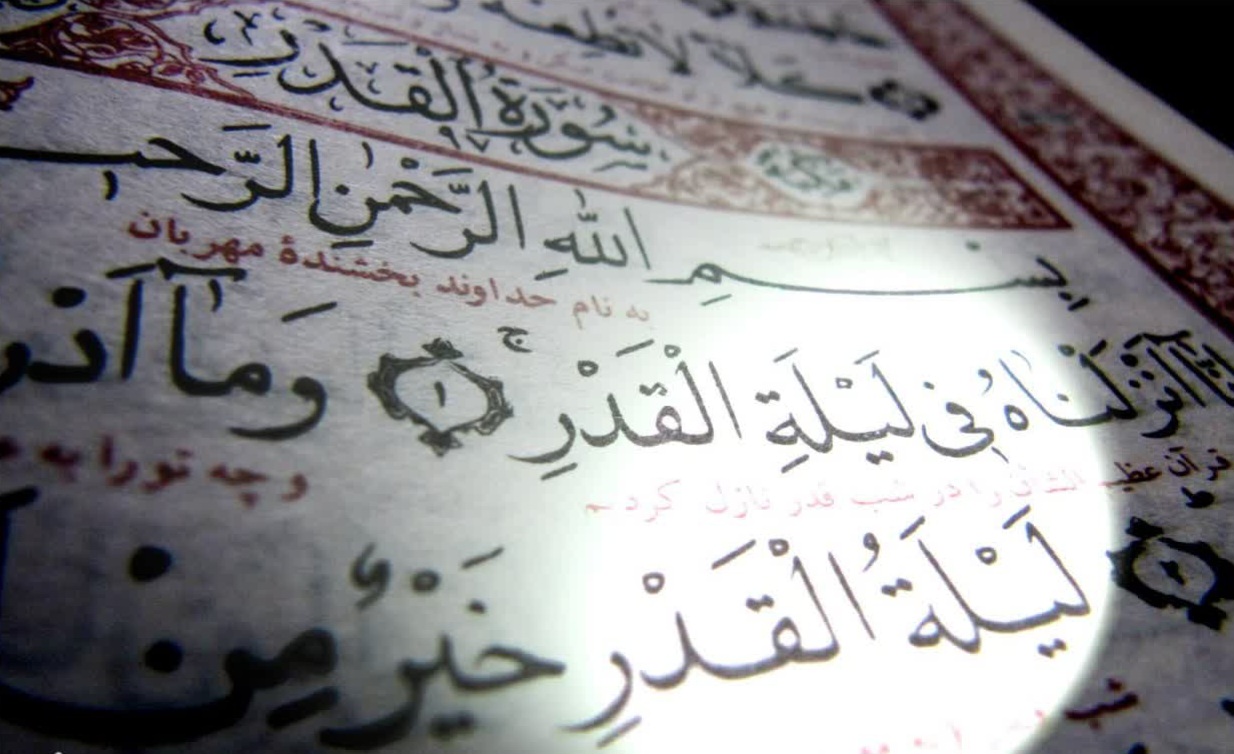 كـلا لا تطعه و
سُورَةُ الْقَدْرِ
بِسْمِ اللّٰهِ الرَّحْمٰنِ الرَّحـ
به نام خداوند بخشندهٔ مهربان
أَنْزَلْنَاهُ فِى لَيْلَةِ الْقَدْرِ ۱ وَمَآ
قرآن عظیم الشأن را در شب قدر نازل کردیم و چه تو را به
۲ لَيْلَةُ الْقَدْرِ خَيْرٌ مِن
شب